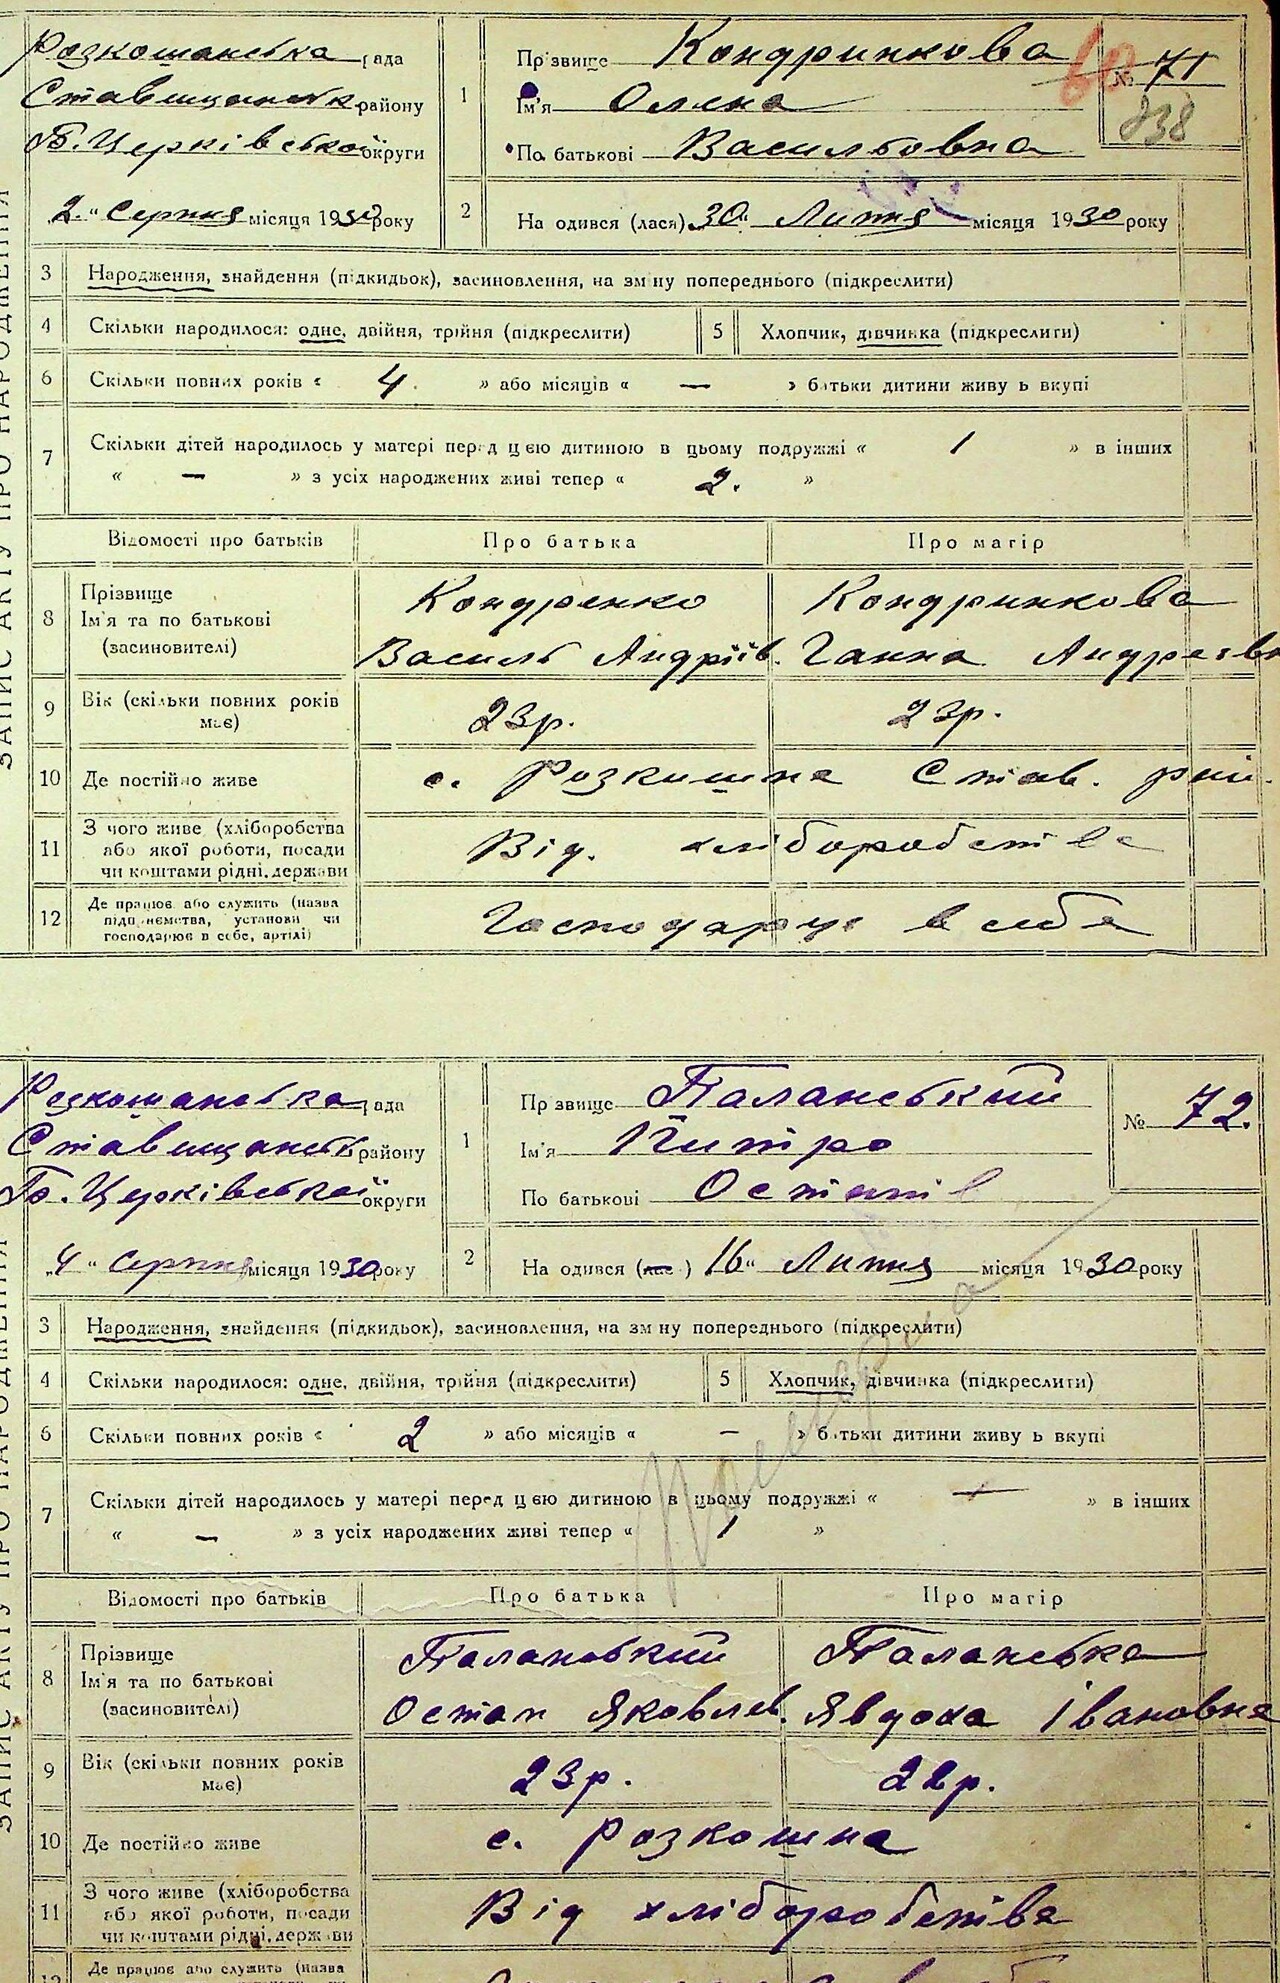 ЗАПИС АКТУ ПРО НАРОДЖЕННЯ
Розкошанська рада
Ставищанськ району
Б. Церківської округи
"2" Серпня місяця 1930 року
1 Прізвище Кондринкова
Ім'я Олена
По батькові Васильовна
№ 71
60
838
2 Народився (лася) 30" Липня місяця 1930 року
3 Народження, знайдення (підкидьок), засиновлення, на зміну попереднього (підкреслити)
4 Скільки народилося: одне, двійня, трійня (підкреслити)
5 Хлопчик, дівчинка (підкреслити)
6 Скільки повних років « 4 » або місяців « — » батьки дитини живуть вкупі
7 Скільки дітей народилось у матері перед цією дитиною в цьому подружжі « 1 » в інших
« — » з усіх народжених живі тепер « 2. »
Відомості про батьків Про батька Про матір
8 Прізвище
Ім'я та по батькові
(засиновителі)
Кондренко Кондринкова
Василь Андріїв. Ганна Андреевн
9 Вік (скільки повних років має) 23р. 23р.
10 Де постійно живе с. Розкишна Став. рай.
11 З чого живе (хліборобства
або якої роботи, посади
чи коштами рідні, держави
Від. хліборобства
12 Де працює або служить (назва
підприємства, установи чи
господарює в себе, артілі)
Господарує в себе
ЗАПИС АКТУ ПРО НАРОДЖЕННЯ
Розкошанська рада
Ставищанськ району
Б. Церківської округи
"4" Серпня місяця 1930 року
1 Прізвище Паланський
Ім'я Питро
По батькові Остапів
№ 72.
2 Народився (лас) 16" Липня місяця 1930 року
3 Народження, знайдення (підкидьок), засиновлення, на зміну попереднього (підкреслити)
4 Скільки народилося: одне, двійня, трійня (підкреслити)
5 Хлопчик, дівчинка (підкреслити)
6 Скільки повних років « 2 » або місяців « — » батьки дитини живуть вкупі
7 Скільки дітей народилось у матері перед цією дитиною в цьому подружжі « — » в інших
« — » з усіх народжених живі тепер « 1 »
Відомості про батьків Про батька Про матір
8 Прізвище
Ім'я та по батькові
(засиновителі)
Паланський Паланська
Остап Яковлев. Явдоха Івановна
9 Вік (скільки повних років має) 23р. 22р.
10 Де постійно живе с. Розкошна
11 З чого живе (хліборобства
або якої роботи, посади
чи коштами рідні, держави
Від хліборобства
12 Де працює або служить (назва